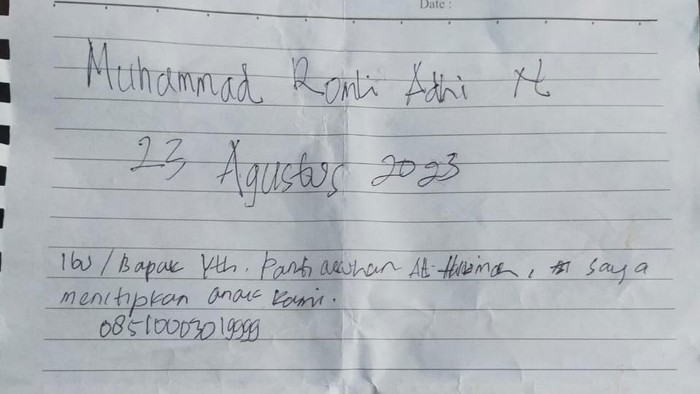 Date :
Muhammad Romli Adhi
23 Agustus 2023
Ibu / Bapak Yth. Panti asuhan, saya
menitipkan anak kami.